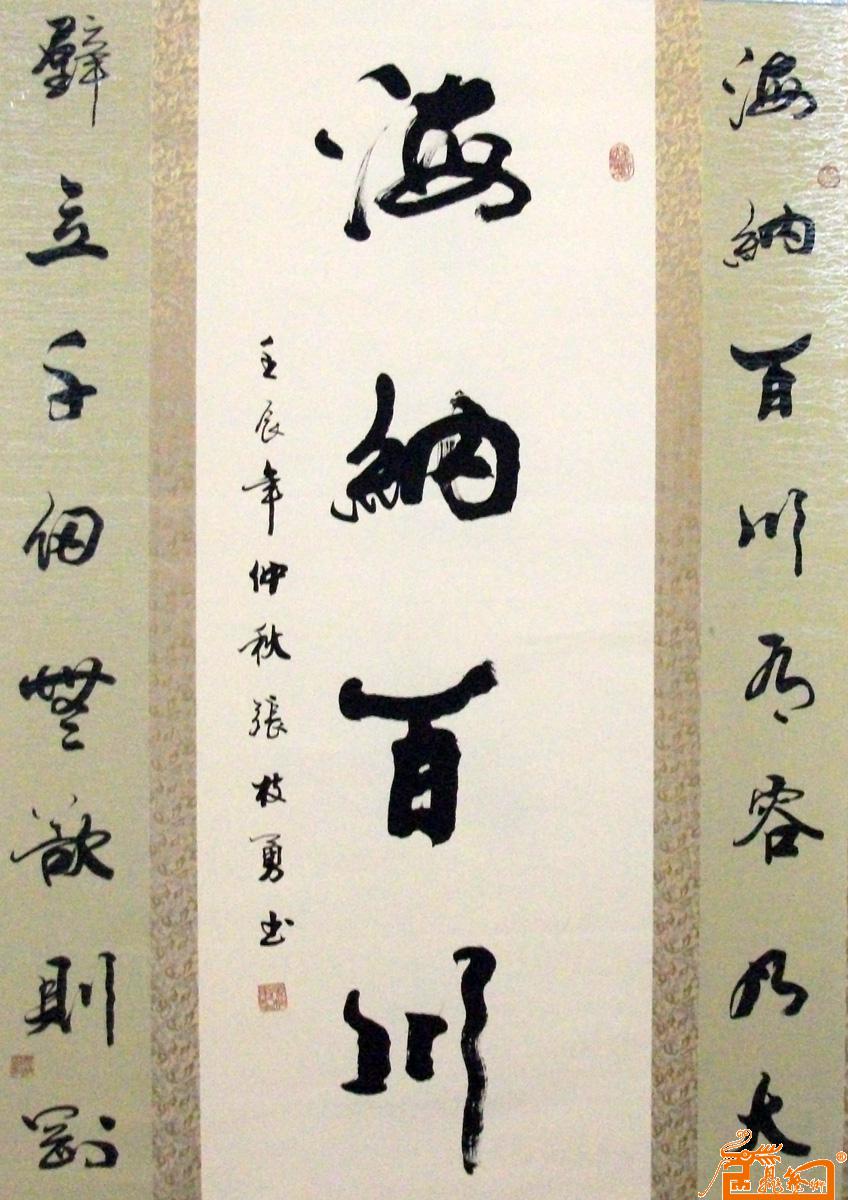 海納百川有容乃大
海納百川
壬辰年仲秋張枝勇书
壁立千仞無欲則剛